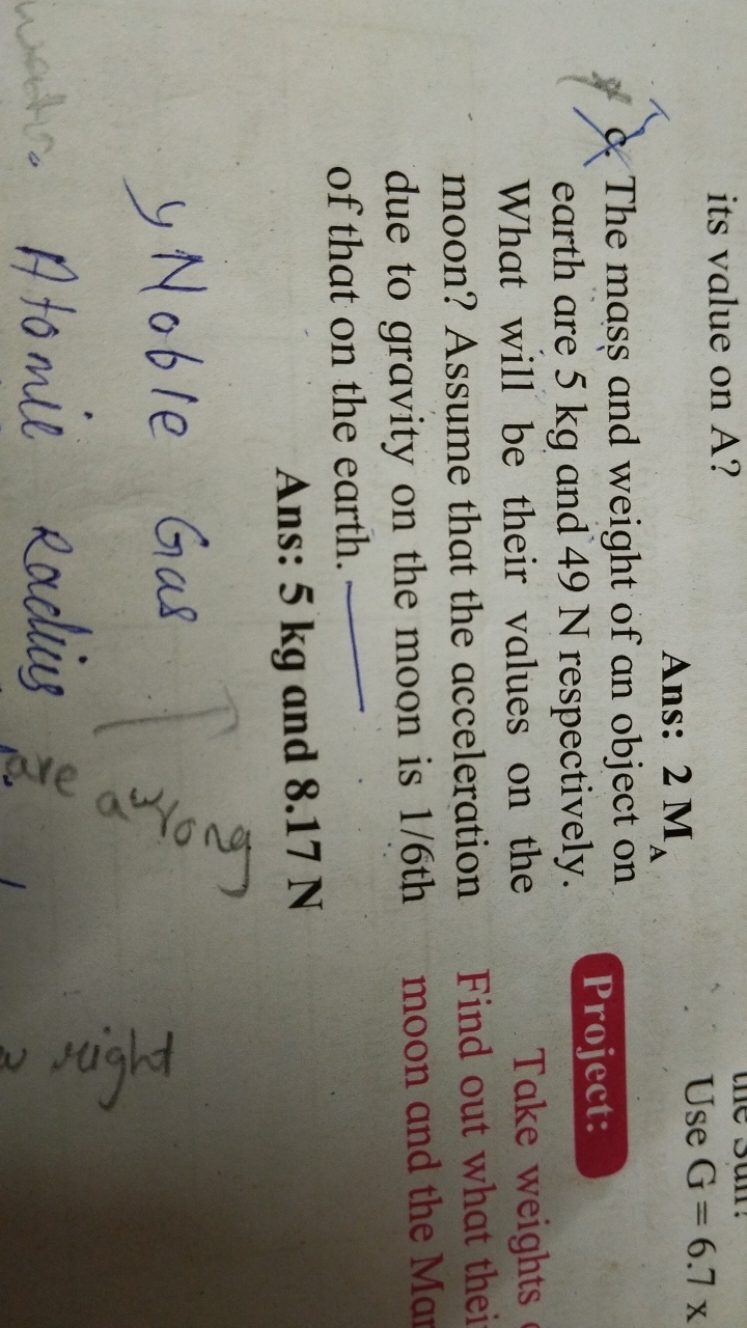 its value on A?
Ans: 2 M_A
c. The mass and weight of an object on
earth are 5 kg and 49 N respectively.
What will be their values on the
moon? Assume that the acceleration
due to gravity on the moon is 1/6th
of that on the earth.
Ans: 5 kg and 8.17 N
Noble Gas
Atomic Radius
are
right
the Sun?
Use G = 6.7 x
Project:
Take weights
Find out what their
moon and the Mar